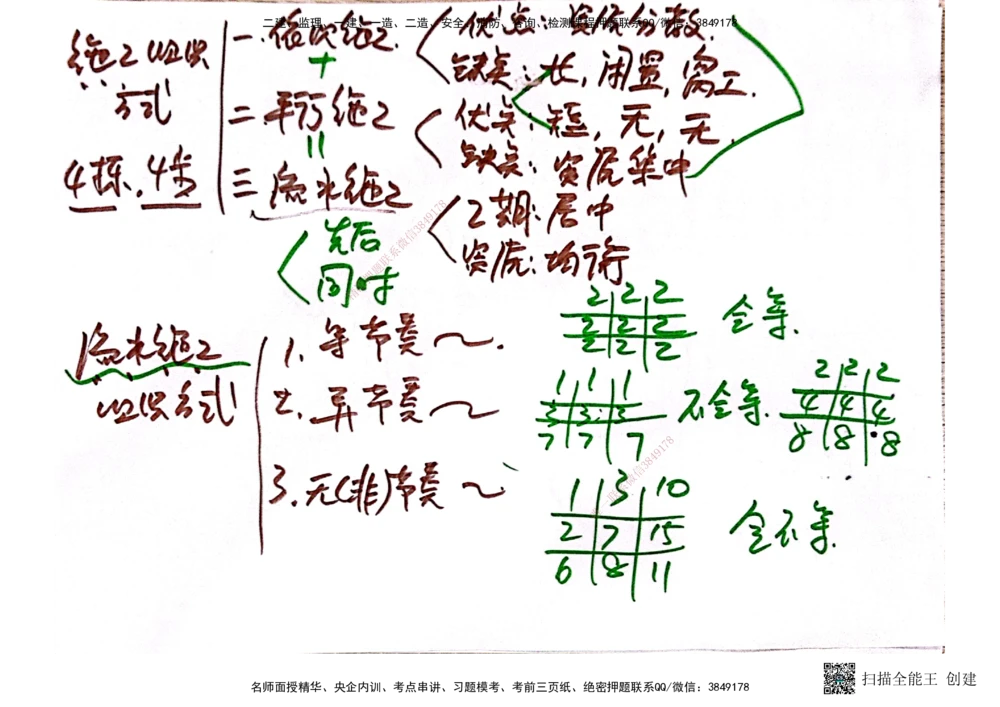 二建、监理、一建、一造、二造、安全、消防、咨询、检测课程押题联系QQ/微信：3849178
施工组织方式
4栋，4步
一.依次施工. 优点：资源分散.
缺点：长，闲置，窝工.
+
二 平行施工 优点：短，无，无.
缺点：资源集中
=
三 流水施工 工期：居中
资源：均衡
先后
同时
流水施工
组织方式
1. 等节奏~.
2 2 2
2 2 2
2 2 2
全等.
2. 异节奏~
1 1 1
3 3 3
7 7 7
不全等.
2 2 2
4 4 4
8 8 8
3. 无(非)节奏~
1 3 10
2 7 15
6 8 11
全不等.
名师面授精华、央企内训、考点串讲、习题模考、考前三页纸、绝密押题联系QQ/微信：3849178
扫描全能王 创建